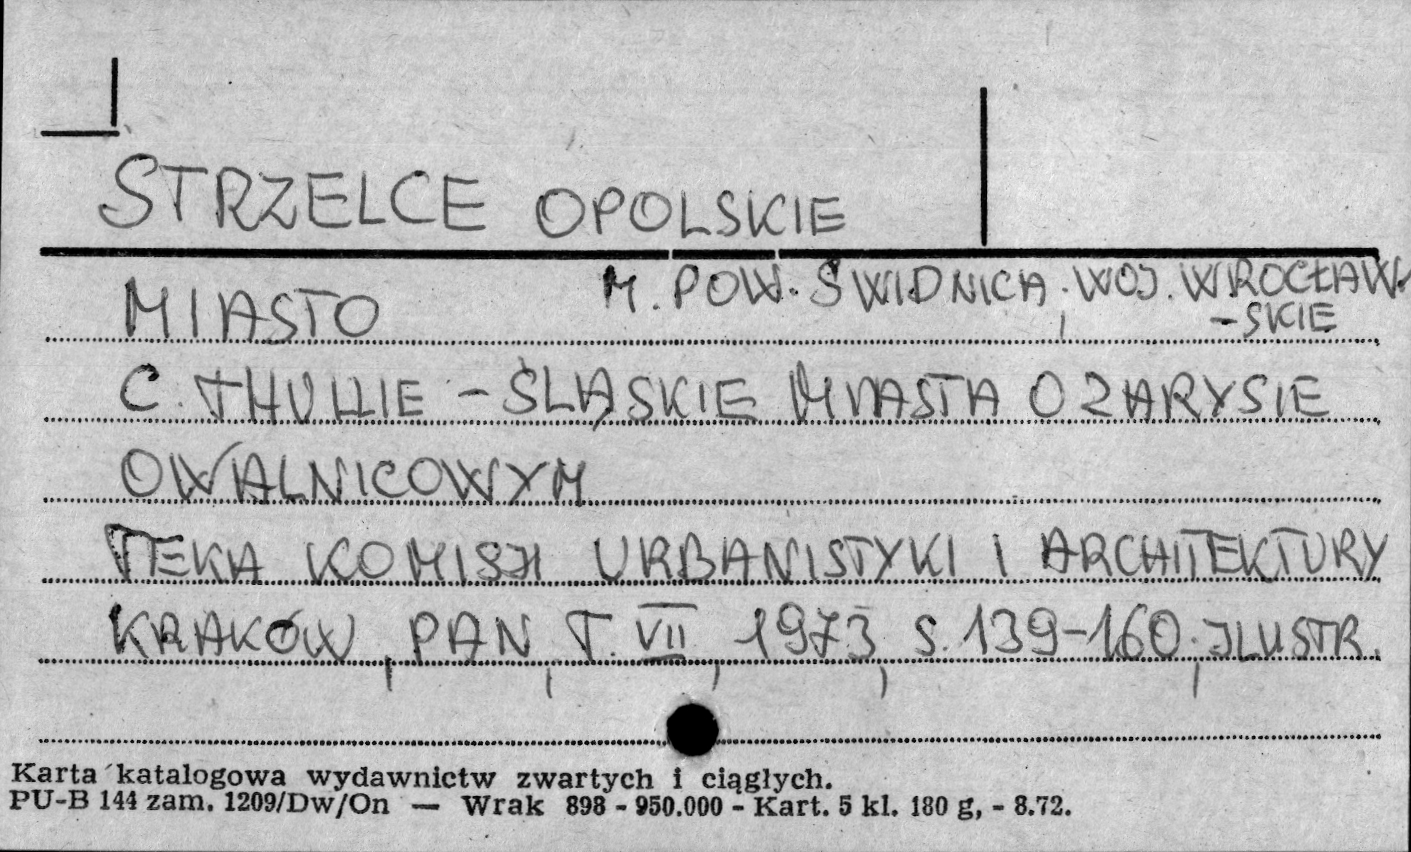 STRZELCE OPOLSKIE
MIASTO M. POW. ŚWIDNICA. WOJ. WROCŁAW
-SKIE
C. THULLIE - ŚLĄSKIE MIASTA O ZARYSIE
OWALNICOWYM
TEKA KOMISJI URBANISTYKI I ARCHITEKTURY
KRAKÓW, PAN, T. VII, 1973, S. 139-160. ILUSTR.
Karta katalogowa wydawnictw zwartych i ciągłych.
PU-B 144 zam. 1209/Dw/On — Wrak 898 - 950.000 - Kart. 5 kl. 180 g, - 8.72.